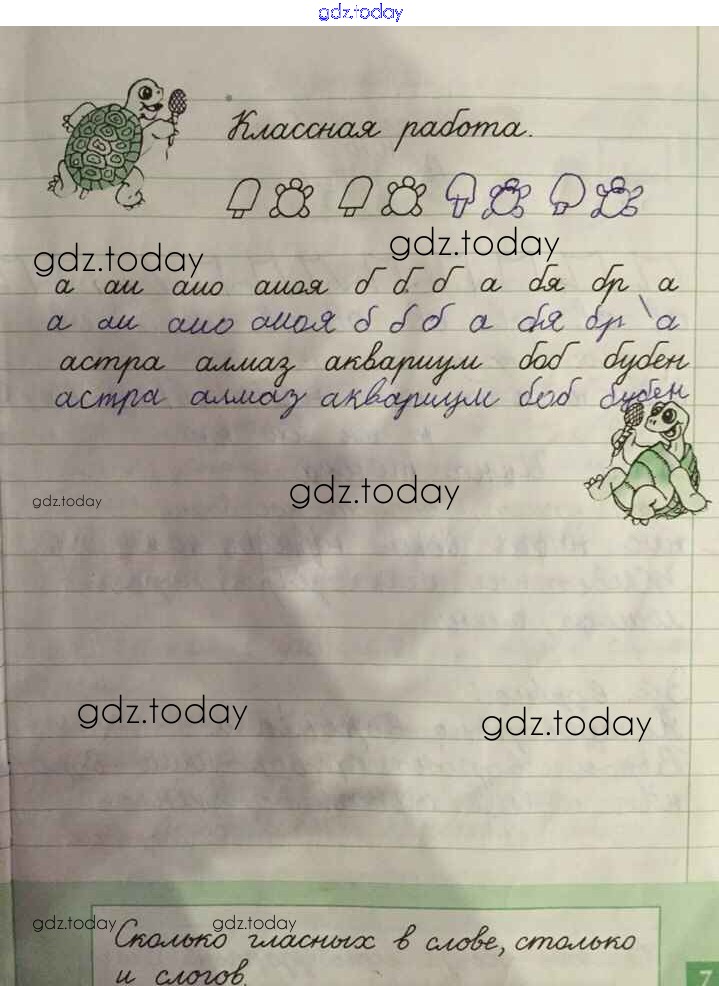 gdz.today
Классная работа.
gdz.today gdz.today
а аи аио аиоя б б б а бя бр а
а аи аио аиоя б б б а бя бр а
астра алмаз аквариум боб бубен
астра алмаз аквариум боб бубен
gdz.today gdz.today
gdz.today gdz.today
gdz.today gdz.today
Сколько гласных в слове, столько
и слогов.
7